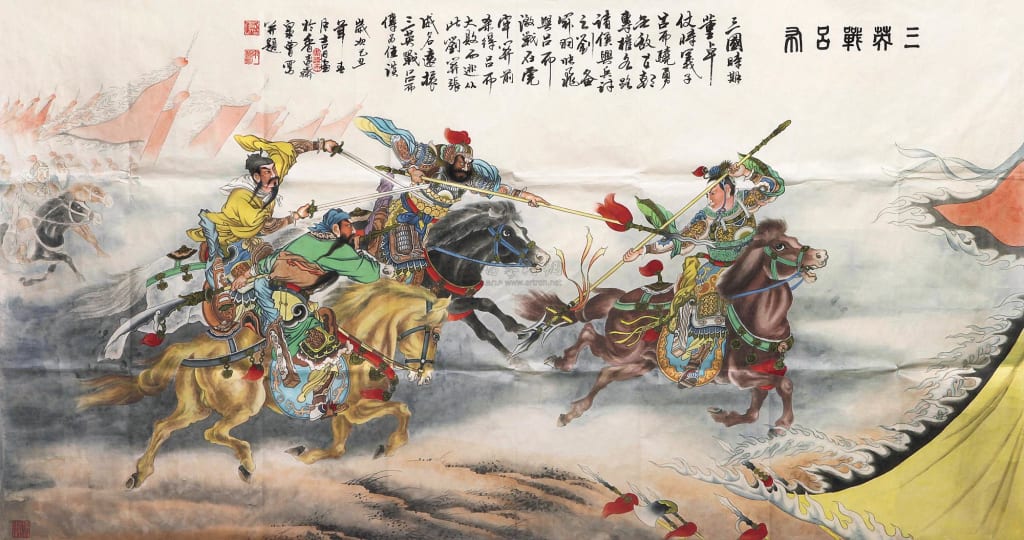 三英戰呂布
三國時期
董卓
仗時義子
呂布驍勇
無敵
專權各路
諸侯興兵討
之劉備
關羽張飛
與呂布
激戰在虎
牢關前
殺得呂布
大敗而逃從
此劉關張
威名遠振
三英戰呂布
傳為佳話
歲次乙丑
年春
并題
www.artron.net